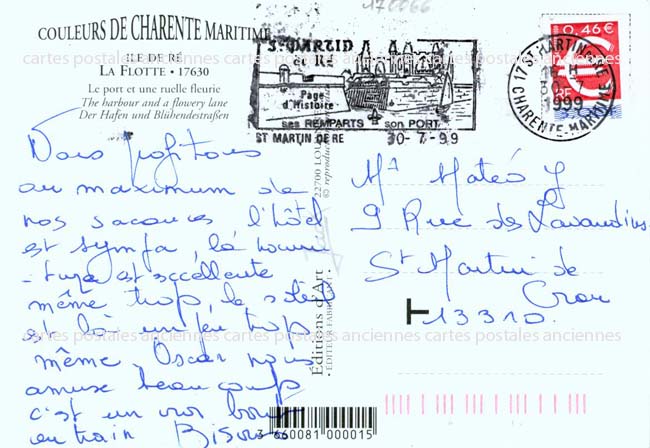 170066
COULEURS DE CHARENTE MARITIME
ILE DE RÉ
LA FLOTTE • 17630
Le port et une ruelle fleurie
The harbour and a flowery lane
Der Hafen und Blühendestraßen
ST MARTIN
de RÉ
Page
d'Histoire
ses REMPARTS son PORT
ST MARTIN DE RE 30-7-99
17 ST MARTIN DE RE
16 H
30-7
1999
CHARENTE-MARITIME
0,46 €
RF
3,00 F
cartes postales anciennes cartes postales anciennes cartes postales anciennes
Nous profitons
au maximum de
nos vacances l'hôtel
est sympa, la nourri
-ture est excellente
même trop, le soleil
est là un peu trop
même. Oscar nous
amuse beaucoup
c'est un vrai bout
en train Bisous
22700 LOU
© reproduc
Editions d'Art
• EDITEUR FABRICANT •
Mr Mateo J
9 Rue des Lavandins
St Martin de
Crau
13310.
cartes postales anciennes cartes postales anciennes cartes postales anciennes
3 660081 000015